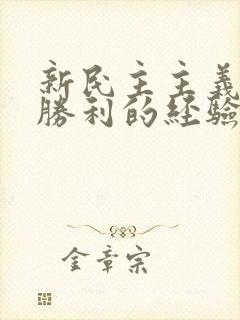 新民主主義
勝利的經驗
金章宗